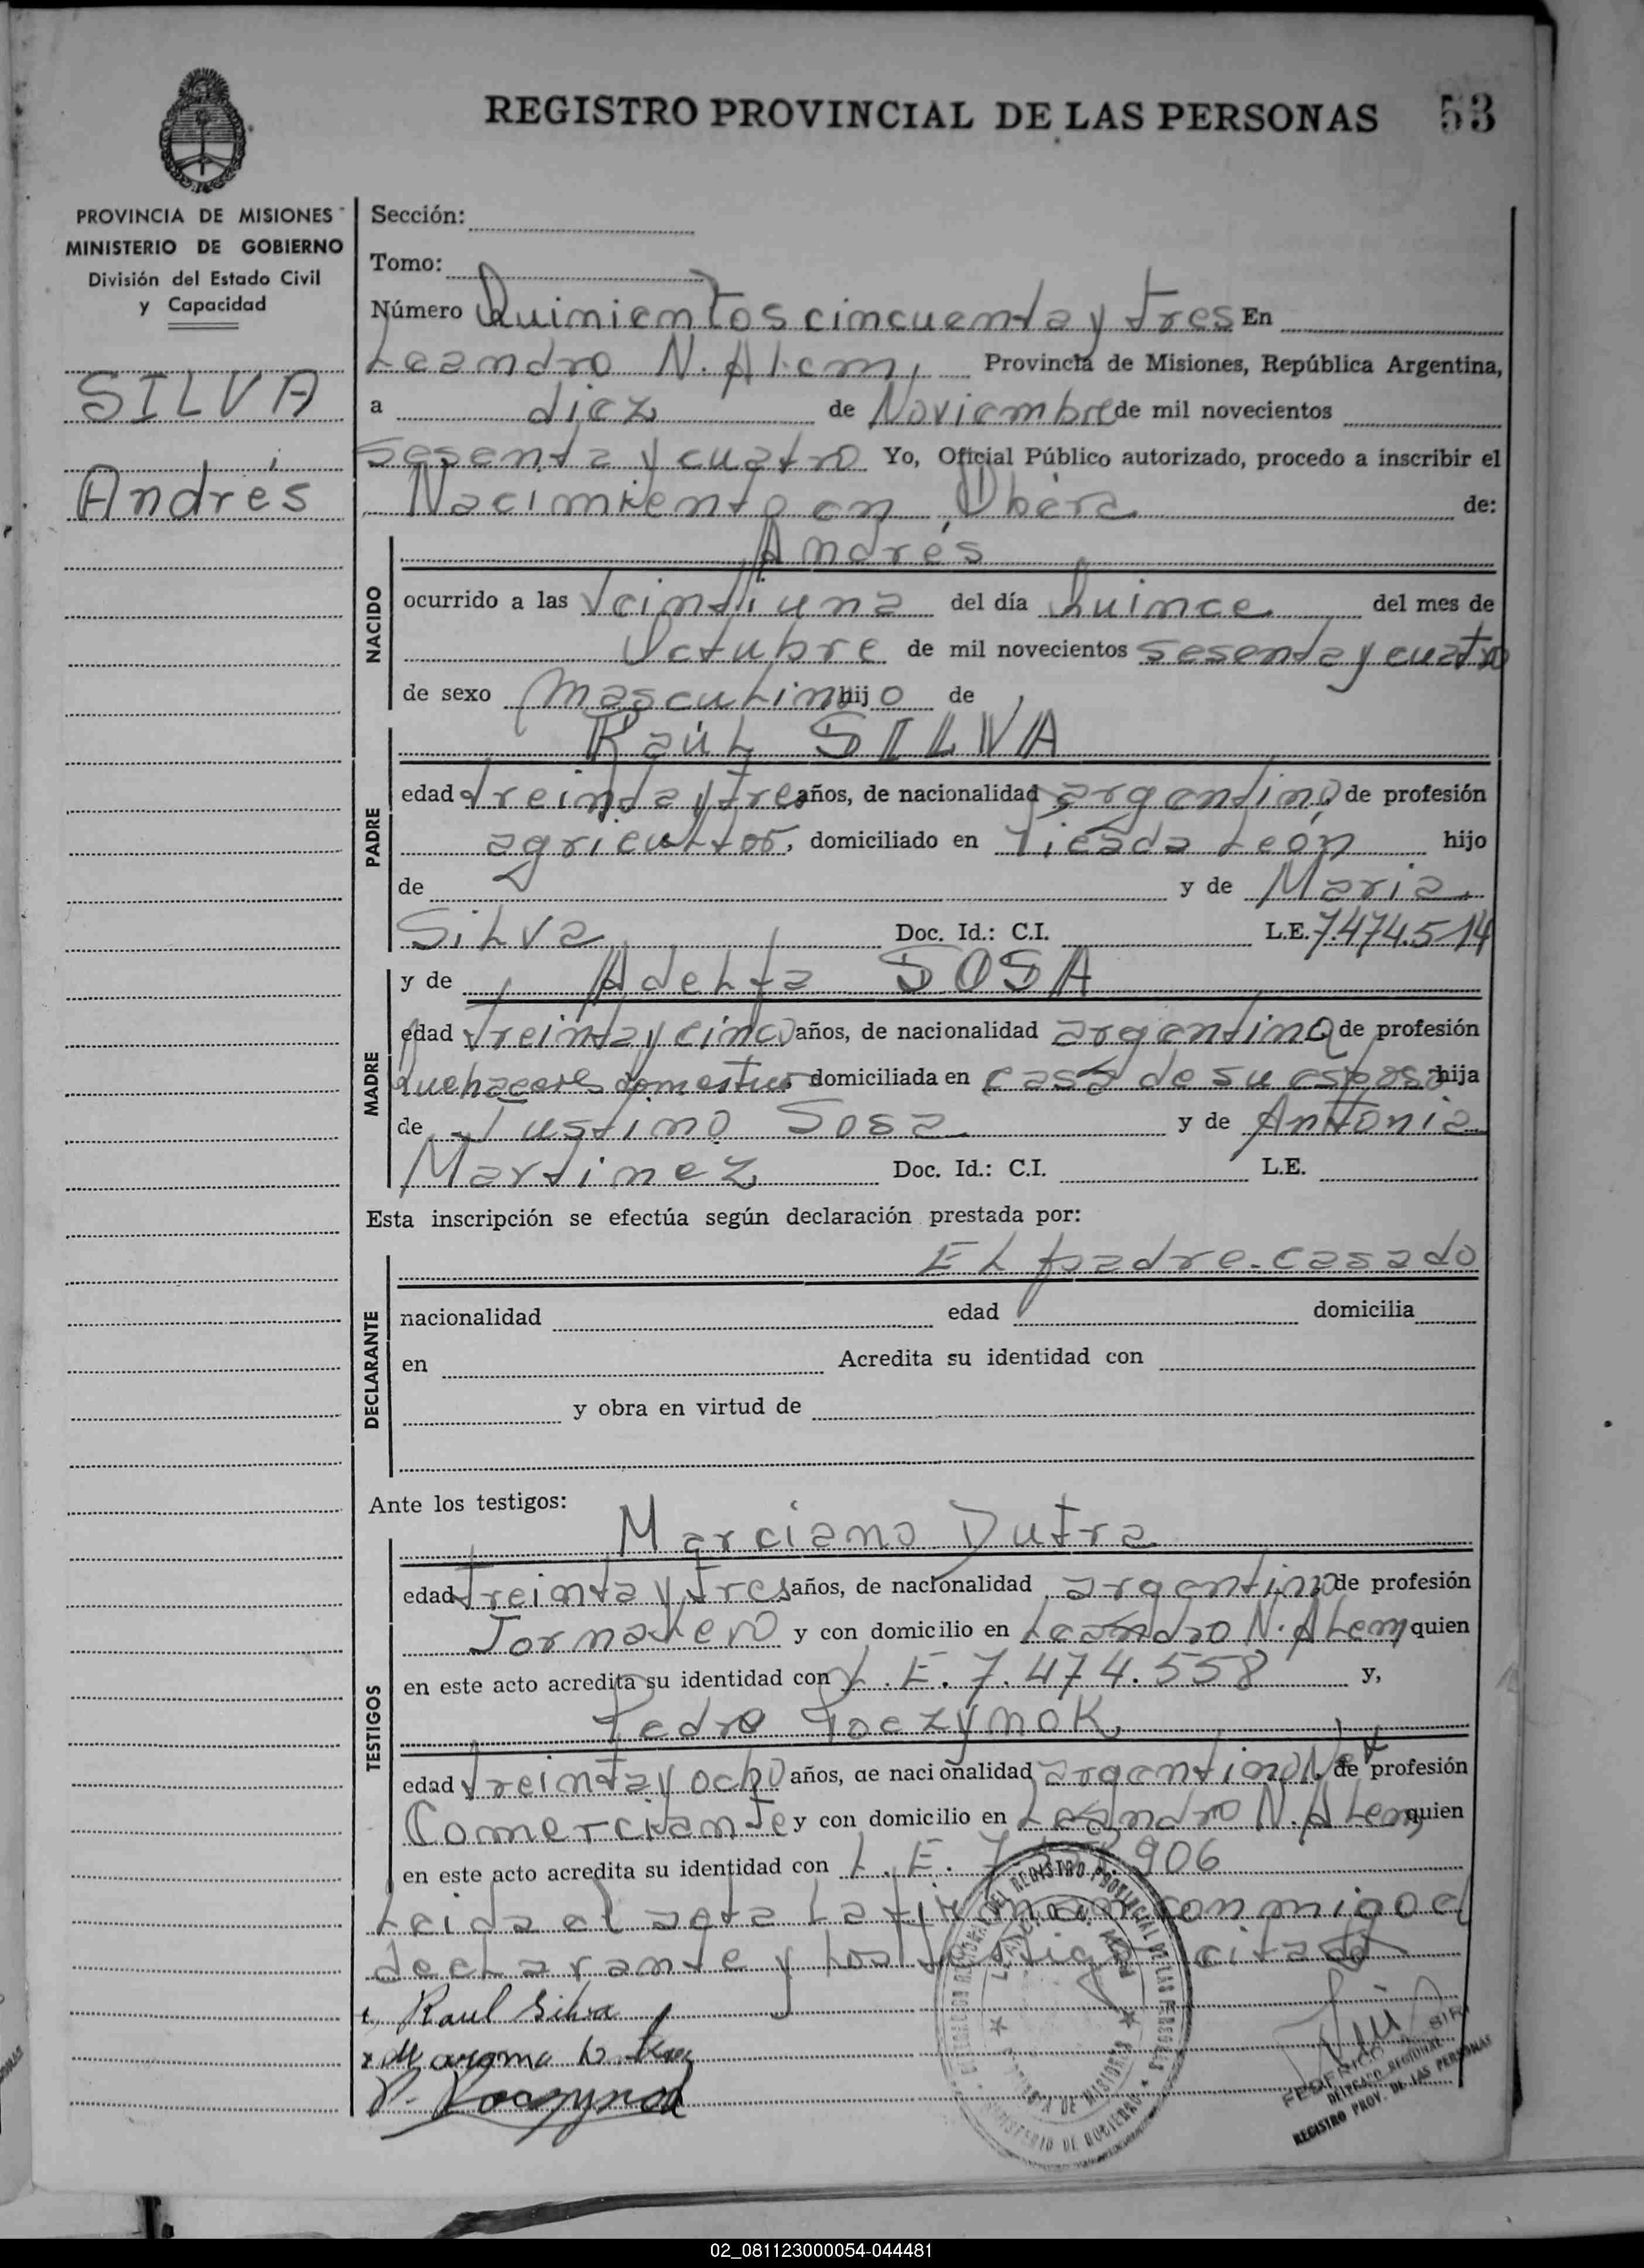 REGISTRO PROVINCIAL DE LAS PERSONAS 53
PROVINCIA DE MISIONES
MINISTERIO DE GOBIERNO
División del Estado Civil
y Capacidad
SILVA
Andrés
Sección:
Tomo:
Número Quinientos cincuenta y tres En
Leandro N. Alem, Provincia de Misiones, República Argentina,
a diez de Noviembre de mil novecientos
sesenta y cuatro Yo, Oficial Público autorizado, procedo a inscribir el
Nacimiento en Oberá de:
Andrés
NACIDO
ocurrido a las Veintiuna del día Quince del mes de
Octubre de mil novecientos sesenta y cuatro
de sexo masculino hijo de
PADRE
Raúl SILVA
edad treinta y tres años, de nacionalidad argentino, de profesión
agricultor, domiciliado en Picada León hijo
de y de Maria
Silva Doc. Id.: C.I. L.E. 7.474.514
MADRE
y de Adelfa SOSA
edad treinta y cinco años, de nacionalidad argentina de profesión
Quehaceres domesticos domiciliada en casa de su esposo hija
de Justino Sosa y de Antonia
Martinez Doc. Id.: C.I. L.E.
Esta inscripción se efectúa según declaración prestada por:
DECLARANTE
El padre.casado
nacionalidad edad domicilia
en Acredita su identidad con
y obra en virtud de
Ante los testigos:
TESTIGOS
Marciano Dutra
edad treinta y tres años, de nacionalidad argentino de profesión
Jornalero y con domicilio en Leandro N. Alem quien
en este acto acredita su identidad con L.E. 7.474.558 y,
Pedro Poczynok,
edad treinta y ocho años, de nacionalidad argentino de profesión
Comerciante y con domicilio en Leandro N. Alem quien
en este acto acredita su identidad con L.E. 906
Leida el acta la firman conmigo el
declarante y los testigos citado
Raul Silva
P. Poczynok
DELEGADO REGIONAL
REGISTRO PROV. DE LAS PERSONAS
02_081123000054-044481